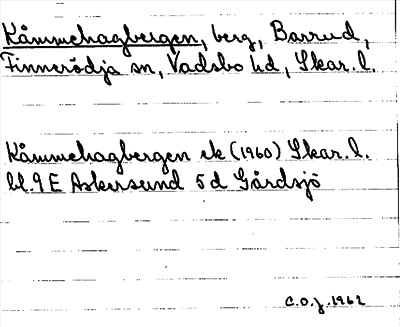 Kåmmehagbergen, berg, Barrud,
Finnerödja sn, Vadsbo hd, Skar. l.
Kåmmehagbergen ek (1960) Skar. l.
bl. 9 E Askersund 5 d Gårdsjö
C.O.J. 1962